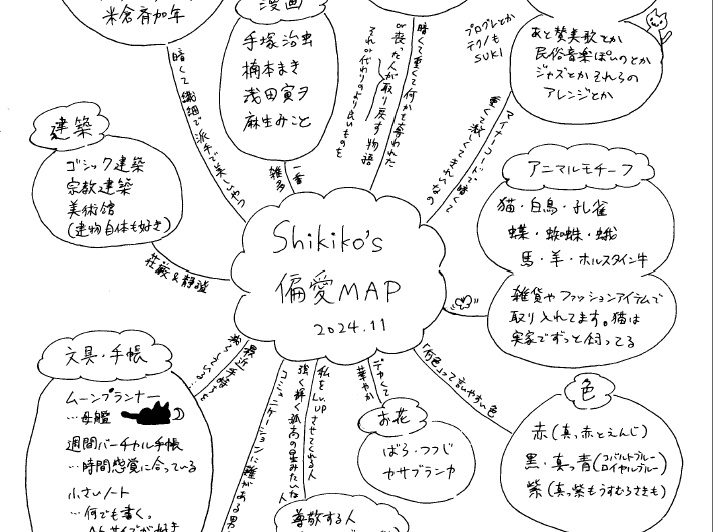 米倉斉加年
漫画
手塚治虫
楠本まき
浅田寅ヲ
麻生みこと
暗くて繊細で派手で美しいもの
一番
雑多
暗くて重くて何かを奪われた
or喪った人が取り戻す物語
それor代わりのより良いものを
プログレとか
テクノも
SUKI
あと賛美歌とか
民俗音楽ぽいのとか
ジャズとかそれらの
アレンジとか
マイナーコードで暗くて
重くて激しくてきれいなの
建築
ゴシック建築
宗教建築
美術館
(建物自体も好き)
荘厳&静謐
Shikiko's
偏愛MAP
2024.11
アニマルモチーフ
猫・白鳥・孔雀
蝶・蜘蛛・蛾
馬・羊・ホルスタイン牛
雑貨やファッションアイテムで
取り入れてます。猫は
実家でずっと飼ってる
文具・手帳
ムーンプランナー
…母艦
週間バーチカル手帳
…時間感覚に合っている
小さいノート
…何でも書く。
最近手帳を
私をLv.UPさせてくれる人
強く輝く孤高の星みたいな人
デカくて
華やか
お花
ばら・つつじ
カサブランカ
尊敬する人
「何色」って言いやすい色
色
赤(真っ赤とえんじ)
黒・真っ青(コバルトブルー ロイヤルブルー)
紫(真っ紫もうすむらさきも)